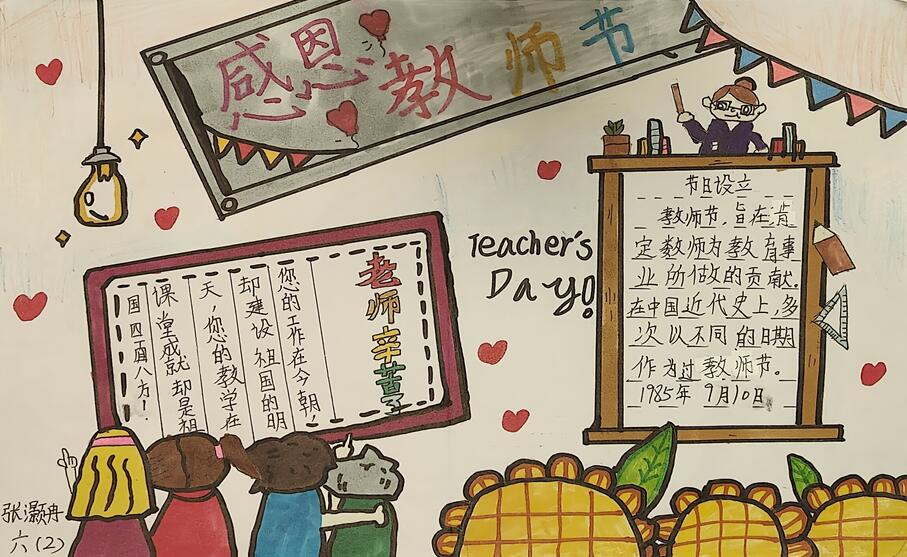 感恩教师节
Teacher's
Day!
节日设立
教师节,旨在肯
定教师为教育事
业所做的贡献.
在中国近代史上,多
次以不同的日期
作为过教师节。
1985年 9月10日
老师辛苦了
您的工作在今朝!
却建设祖国的明
天,您的教学在
课堂成就却是祖
国四面八方!
张灏冉
六(2)